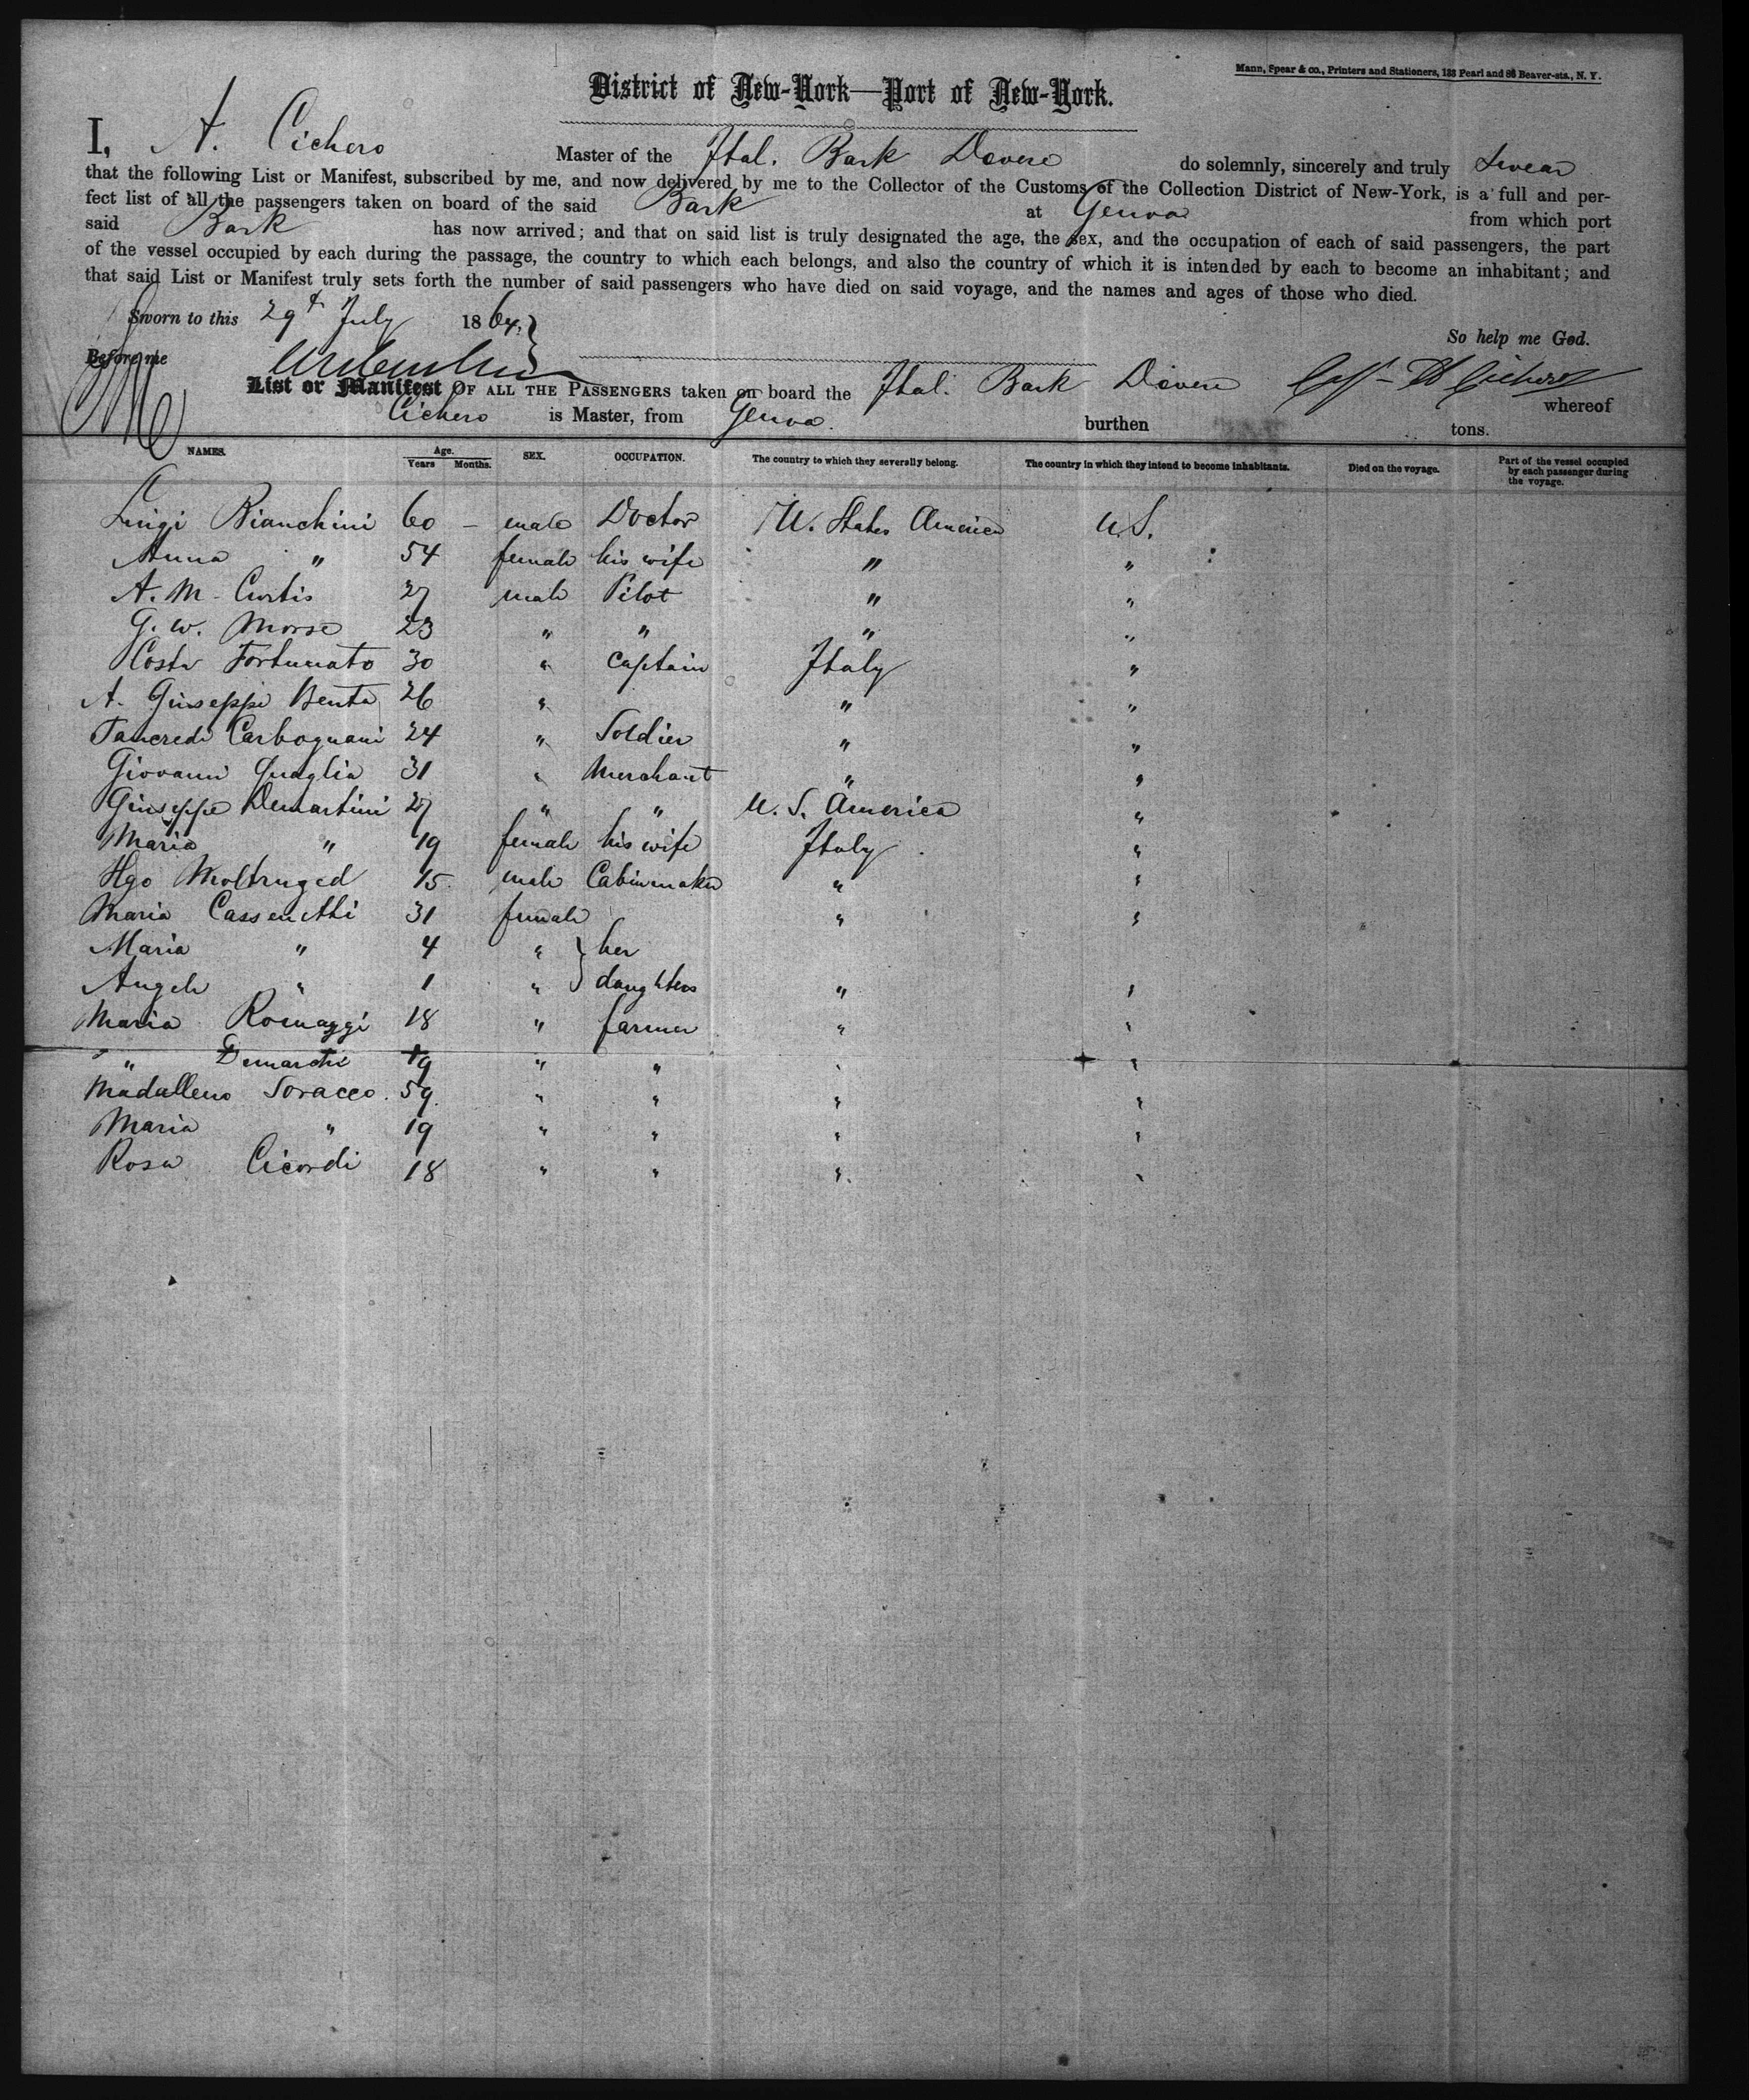 Mann, Spear & co., Printers and Stationers, 133 Pearl and 86 Beaver-sts., N. Y.
District of New-York—Port of New-York.
I, A. Cichero Master of the Ital. Bark Dovere do solemnly, sincerely and truly Swear
that the following List or Manifest, subscribed by me, and now delivered by me to the Collector of the Customs of the Collection District of New-York, is a full and per-
fect list of all the passengers taken on board of the said Bark at Genoa from which port
said Bark has now arrived; and that on said list is truly designated the age, the sex, and the occupation of each of said passengers, the part
of the vessel occupied by each during the passage, the country to which each belongs, and also the country of which it is intended by each to become an inhabitant; and
that said List or Manifest truly sets forth the number of said passengers who have died on said voyage, and the names and ages of those who died.
Sworn to this 29t July 1864.
So help me God.
Before me
List or Manifest OF ALL THE PASSENGERS taken on board the Ital. Bark Dovere Cichero whereof
Cichero is Master, from Genoa. burthen tons.
NAMES. Age. Years Months. SEX. OCCUPATION. The country to which they severally belong. The country in which they intend to become inhabitants. Died on the voyage. Part of the vessel occupied by each passenger during the voyage.
Luigi Bianchini 60 – male Doctor U. States America U.S.
Anna " 54 female his wife " "
A. M. Curtis 27 male Pilot " "
G. W. Morse 23 " " " "
Costa Fortunato 30 " Captain Italy "
A. Giuseppe Benta 26 " " "
Tancredi Carbognani 24 " Soldier " "
Giovanni Quaglia 31 " Merchant " "
Giuseppe Demartini 27 " " U. S. America "
Maria " 19 female his wife Italy "
15 male Cabinmaker " "
Maria Cassenetti 31 female " "
Maria " 4 " } her
Angela " 1 " } daughters " "
Maria Romaggi 18 " farmer " "
" Demarchi 19 " " " "
Madallena Soracco. 59. " " " "
Maria " 19 " " " "
Rosa Cicordi 18 " " " "